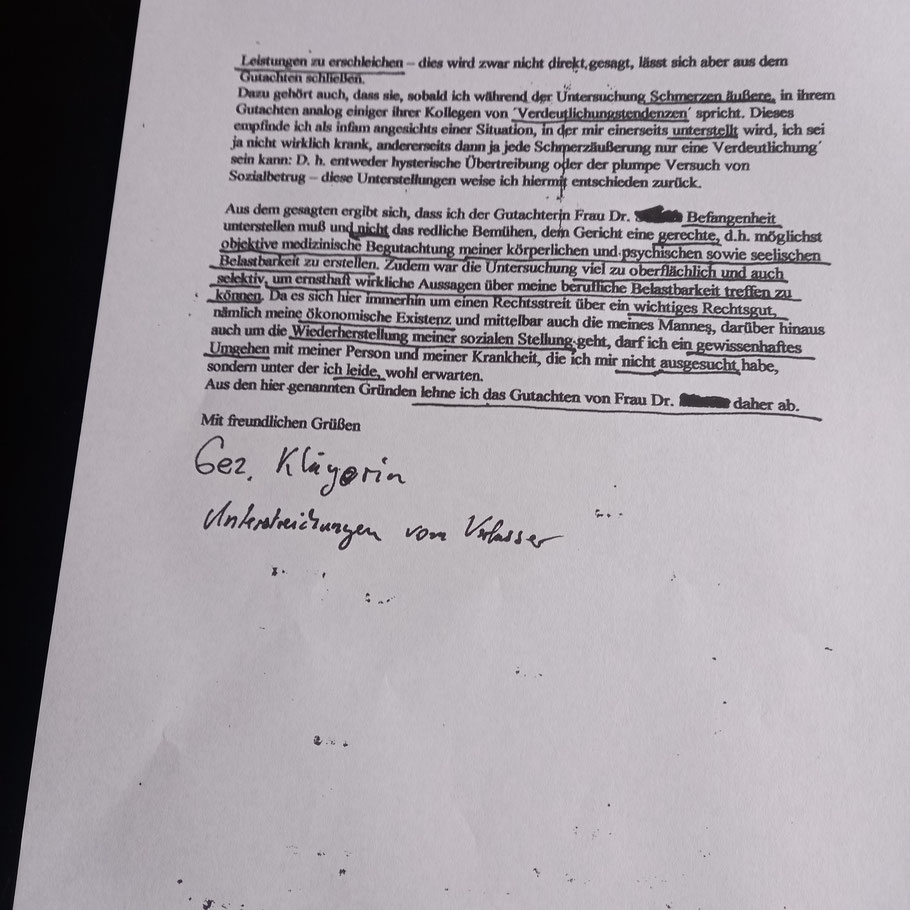 Leistungen zu erschleichen – dies wird zwar nicht direkt gesagt, lässt sich aber aus dem
Gutachten schließen.
Dazu gehört auch, dass sie, sobald ich während der Untersuchung Schmerzen äußere, in ihrem
Gutachten analog einiger ihrer Kollegen von ‘Verdeutlichungstendenzen‘ spricht. Dieses
empfinde ich als infam angesichts einer Situation, in der mir einerseits unterstellt wird, ich sei
ja nicht wirklich krank, andererseits dann ja jede Schmerzäußerung nur eine Verdeutlichung‘
sein kann: D. h. entweder hysterische Übertreibung oder der plumpe Versuch von
Sozialbetrug – diese Unterstellungen weise ich hiermit entschieden zurück.
Aus dem gesagten ergibt sich, dass ich der Gutachterin Frau Dr. Befangenheit
unterstellen muß und nicht das redliche Bemühen, dem Gericht eine gerechte, d.h. möglichst
objektive medizinische Begutachtung meiner körperlichen und psychischen sowie seelischen
Belastbarkeit zu erstellen. Zudem war die Untersuchung viel zu oberflächlich und auch
selektiv, um ernsthaft wirkliche Aussagen über meine berufliche Belastbarkeit treffen zu
können. Da es sich hier immerhin um einen Rechtsstreit über ein wichtiges Rechtsgut,
nämlich meine ökonomische Existenz und mittelbar auch die meines Mannes, darüber hinaus
auch um die Wiederherstellung meiner sozialen Stellung geht, darf ich ein gewissenhaftes
Umgehen mit meiner Person und meiner Krankheit, die ich mir nicht ausgesucht habe,
sondern unter der ich leide, wohl erwarten.
Aus den hier genannten Gründen lehne ich das Gutachten von Frau Dr. daher ab.
Mit freundlichen Grüßen
Gez. Klägerin
Unterstreichungen vom Verfasser